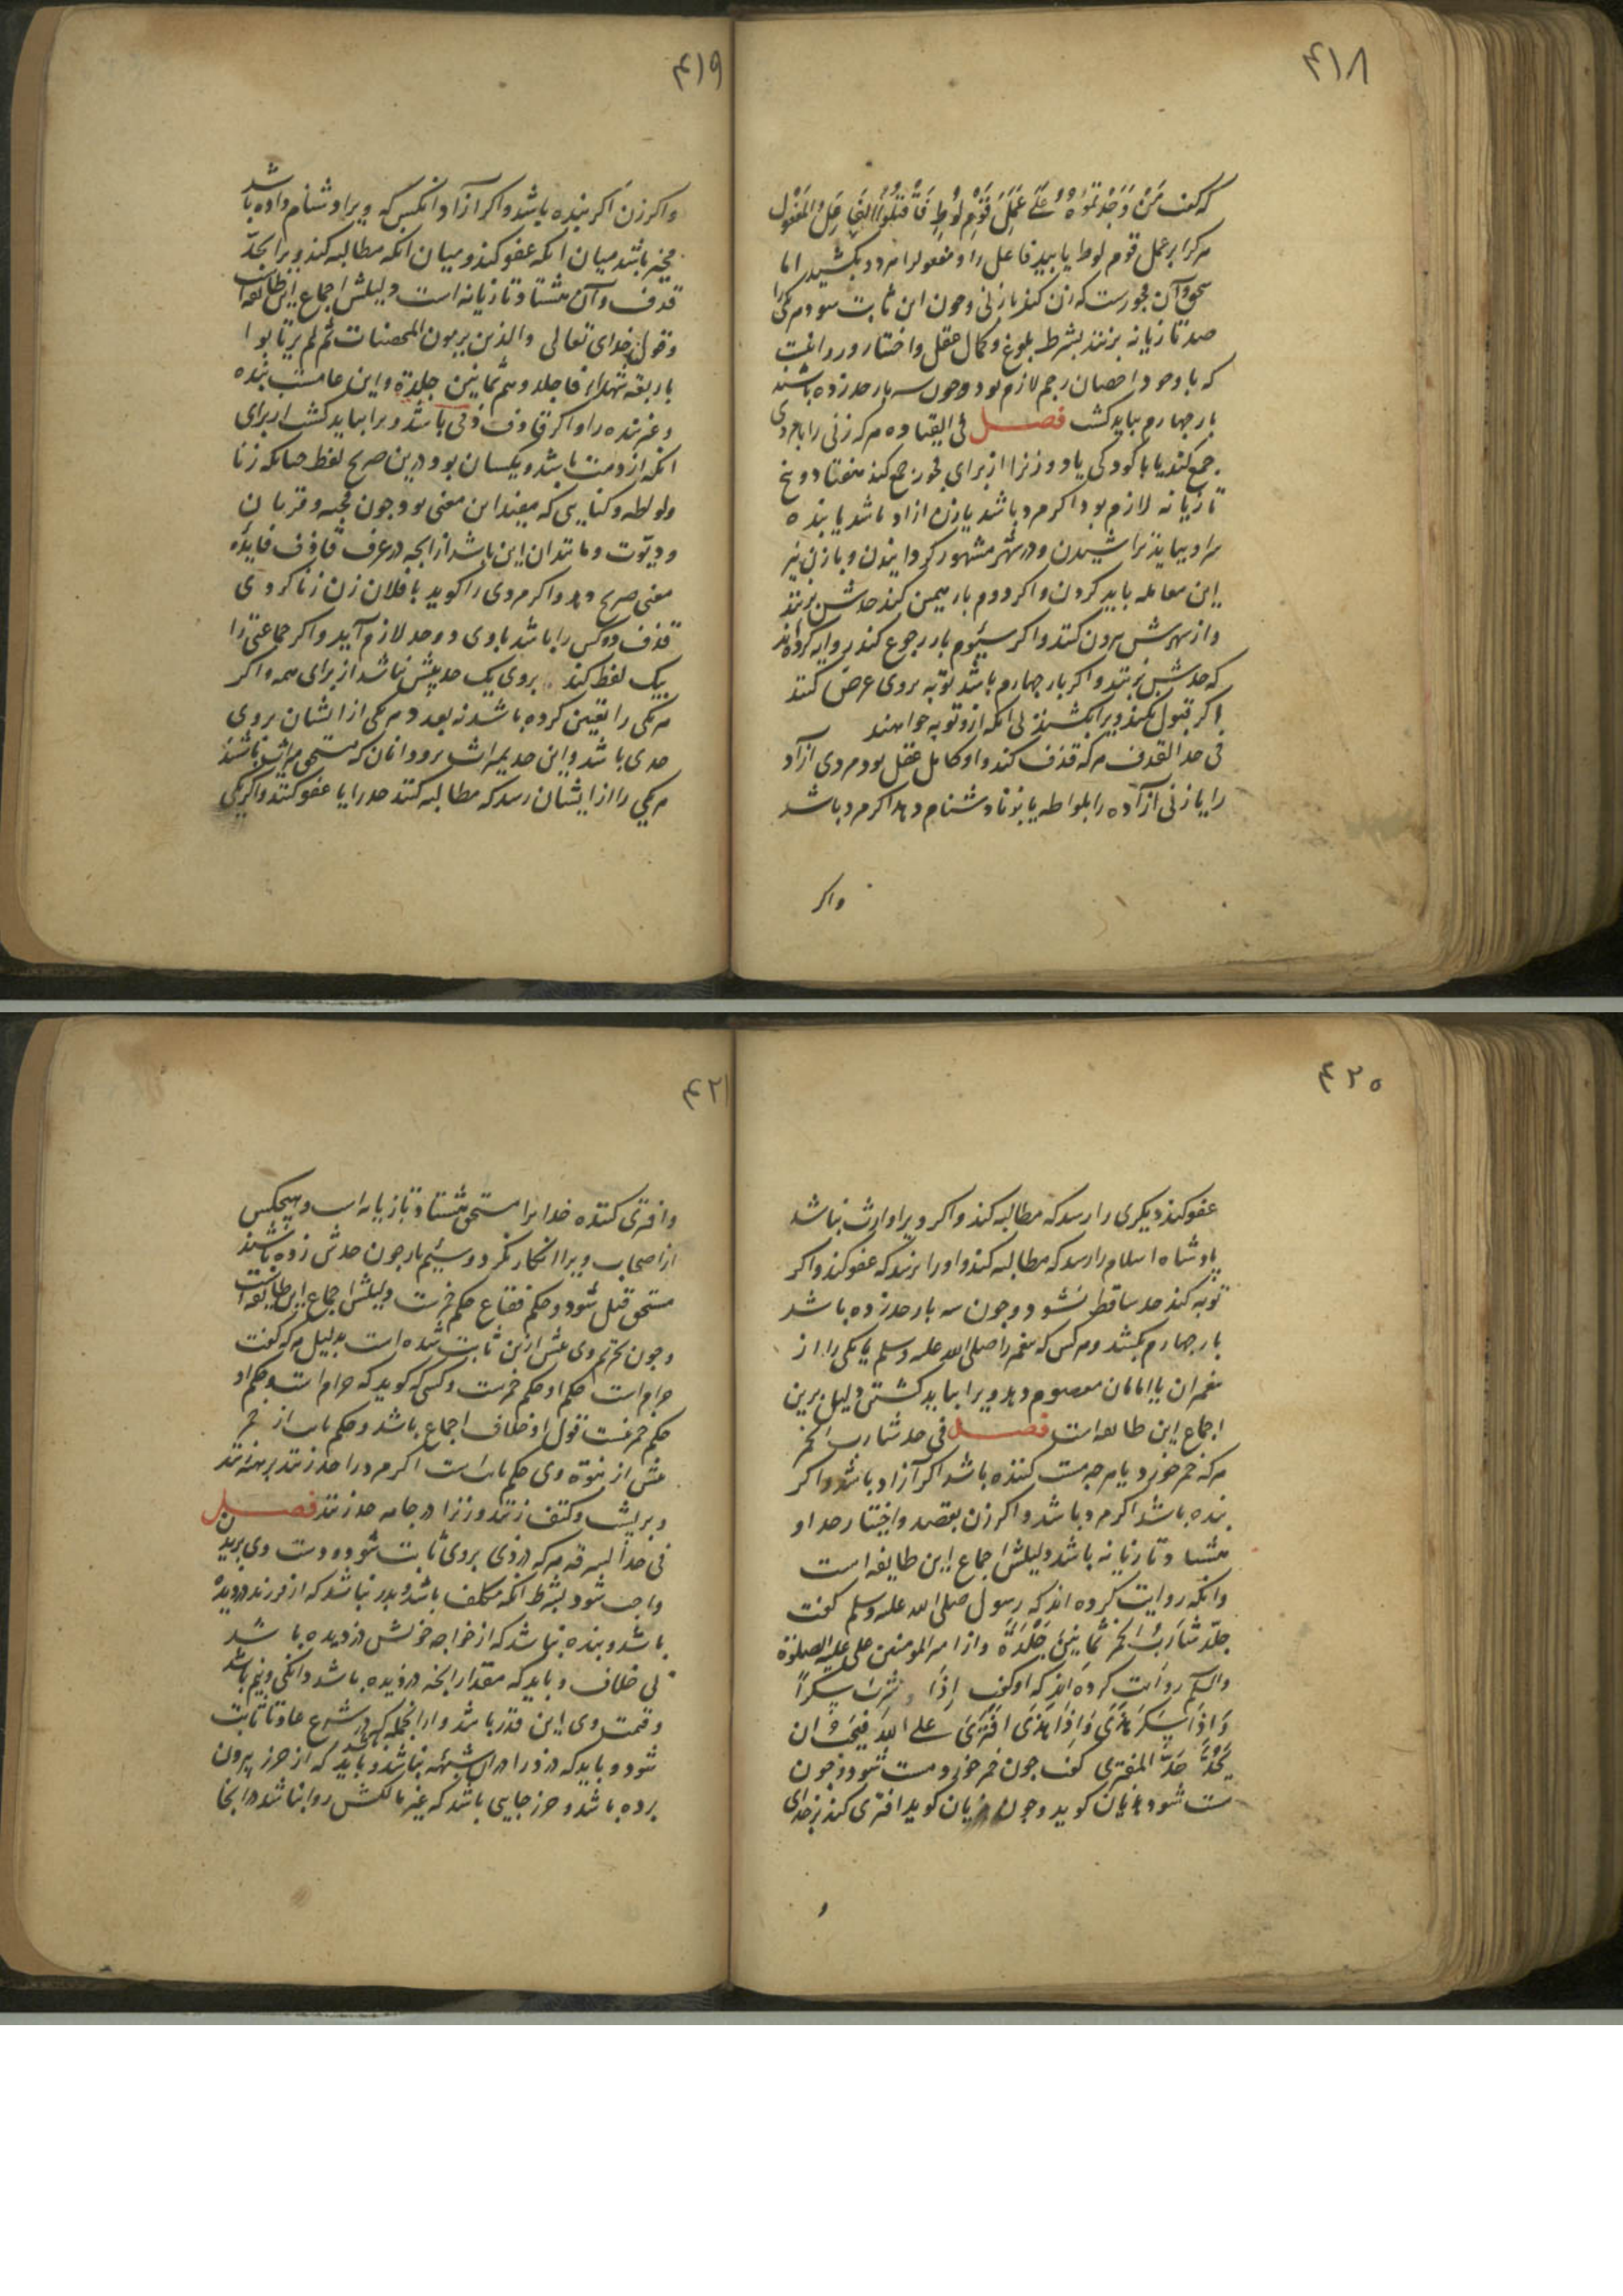 ۴۱۸
که کفت مَنْ وَجَدْتمُوُهُ عَلَی عَمَلِ قَوْمِ لُوُطٍ فَاقْتُلُوُا الفَاعِلَ وَالمَفْعُولَ
هرکرا بر عمل قوم لوط یابید فاعل را و مفعولرا هر دو بکشید اما
سحق وآن فجورست که زن کند بازنی وچون این ثابت شود هریکی را
صد تازیانه بزنند بشرط بلوغ وکمال عقل واختیار و
که باوجود احصان رجم لازم بود وچون سه بار حد زده باشند
بار چهارم بباید کشت فصل فی القیاده هرکه زنی را بامردی
جمع کند یا باکودکی یا دو زنرا از برای فجور جمع کند هفتاد وپنج
تازیانه لازم بود اکر مرد باشد یا زن ازاد باشد یا بنده
سر او بباید تراشیدن ودر شهر مشهور کردانیدن وبا زن نیز
این معامله باید کردن واکر دوم بار همین کند حدش بزنند
واز شهرش بیرون کنند واکر سیوم بار رجوع کند روایه کرده‌اند
که حدش بزنند واکر بار چهارم باشد توبه بروی عرض کنند
اکر قبول نکند ویرا بکشند بی انکه ازو توبه خواهند
فی حد القذف هرکه قذف کند واو کامل عقل بود مردی ازاد
را یا زنی ازاده را بلواطه یا بزنا دشنام دهد اکر مرد باشد
واکر
۴۱۹
واکر زن اکر بنده باشد واکر آزاد وانکس که ویرا دشنام داده باشد
مخیر باشد میان انکه عفو کند ومیان انکه مطالبه کند ویرا بحدّ
قذف وآن هشتاد تازیانه است دلیلش اجماع این طایفه است
وقول خدای تعالی والذین یرمون المحصنات ثم لم یأتوا
باربعة شهداء فاجلدوهم ثمانین جلدة واین عامست بنده
وغیر بنده را واکر قاذف ذمّی باشد ویرا بباید کشت از برای
انکه از ذمت باشد ویکسان بود درین صریح لفظ چنانکه زنا
ولواطه وکنایتی که مفید این معنی بود چون قحبه وقرنان
ودیّوت ومانند ان این باشد از انچه در عرف قاذف فایدهٔ
معنی صریح دهد واکر مردی را کوید بافلان زن زنا کردی
قذف دو کس را باشد باوی دو حد لازم آید واکر جماعتی را
بیک لفظ کند بروی یک حد بیش نباشد از برای همه واکر
هریکی را تعیین کرده باشد نه بعدد هریکی ازایشان بروی
حدی باشد واین حد بمیراث برود وانان که مستحق میراث باشند
هریکی را ازایشان رسد که مطالبه کنند حد را یا عفو کنند واکر یکی
۴۲۰
عفو کند دیکری را رسد که مطالبه کند واکر ویرا وارث نباشد
پادشاه اسلام را رسد که مطالبه کند واورا نرسد که عفو کند واکر
توبه کند حد ساقط نشود وچون سه بار حد زده باشد
بار چهارم بکشند وهرکس که پیغمبر را صلی الله علیه وسلم یا یکی را از
پیغمبران یا امامان معصوم دهد ویرا بباید کشتن دلیل برین
اجماع این طایفه است فصل فی حد شارب الخمر
هرکه خمر خورد یا هرچه مست کننده باشد اکر آزاد باشد واکر
بنده باشد اکر مرد باشد واکر زن بقصد واختیار حد او
هشتاد تازیانه باشد دلیلش اجماع این طایفه است
وانکه روایت کرده اند که رسول صلی الله علیه وسلم کفت
جلد شَارِبُ الخمر ثَمَانِینَ جَلْدَةً واز امیر المومنین علی علیه الصلوة
والسلم روایت کرده اند که او کفت اِذَا شَرِبَ سَکِرَ
وَاِذَا سَکِرَ هَذَی وَاِذَا هَذَی افْتَرَی علی اللهِ فیَجِبُ اَن
یُحَدَّ حَدَّ المفتری کفت چون خمر خورد مست شود وچون
مست شود هذیان کوید وچون هذیان کوید افتری کند بر خدای
و
۴۲۱
وافتری کننده خدایرا مستحق هشتاد تازیانه است وهیچکس
از اصحاب ویرا انکار نکرد وسیم بار چون حدش زده باشند
مستحق قتل شود وحکم فقاع حکم خمرست دلیلش اجماع این طایفه است
وچون تحریم وی پیش ازین ثابت شده است بدلیل هرکه کفت
حرام است حکم او حکم خمرست وکسی که کوید که حرام است وحکم او
حکم خمر نیست قول او خلاف اجماع باشد وحکم تایب از خمر
پیش از ثبوت وی حکم تایب است اکر مرد را حد زنند برهنه زنند
وبر پشت وکتف زنند وزنرا در جامه حد زنند فصل
فی حد السرقه هرکه دزدی بروی ثابت شود دست وی برید
واجب شود بشرط انکه مکلف باشد وپدر نباشد که از فرزند دزدیده
باشد وبنده نباشد که از خواجه خویش دزدیده باشد
بی خلاف وباید که مقدار انچه دزدیده باشد دانکی ونیم باشد
وقیمت وی این قدر باشد واز انجمله که در شرع عادتا ثابت
شود وباید که دزد را در ان شبهة نباشد وباید که از حرز بیرون
برده باشد وحرز جایی باشد که غیر مالکش روا نباشد در انجا